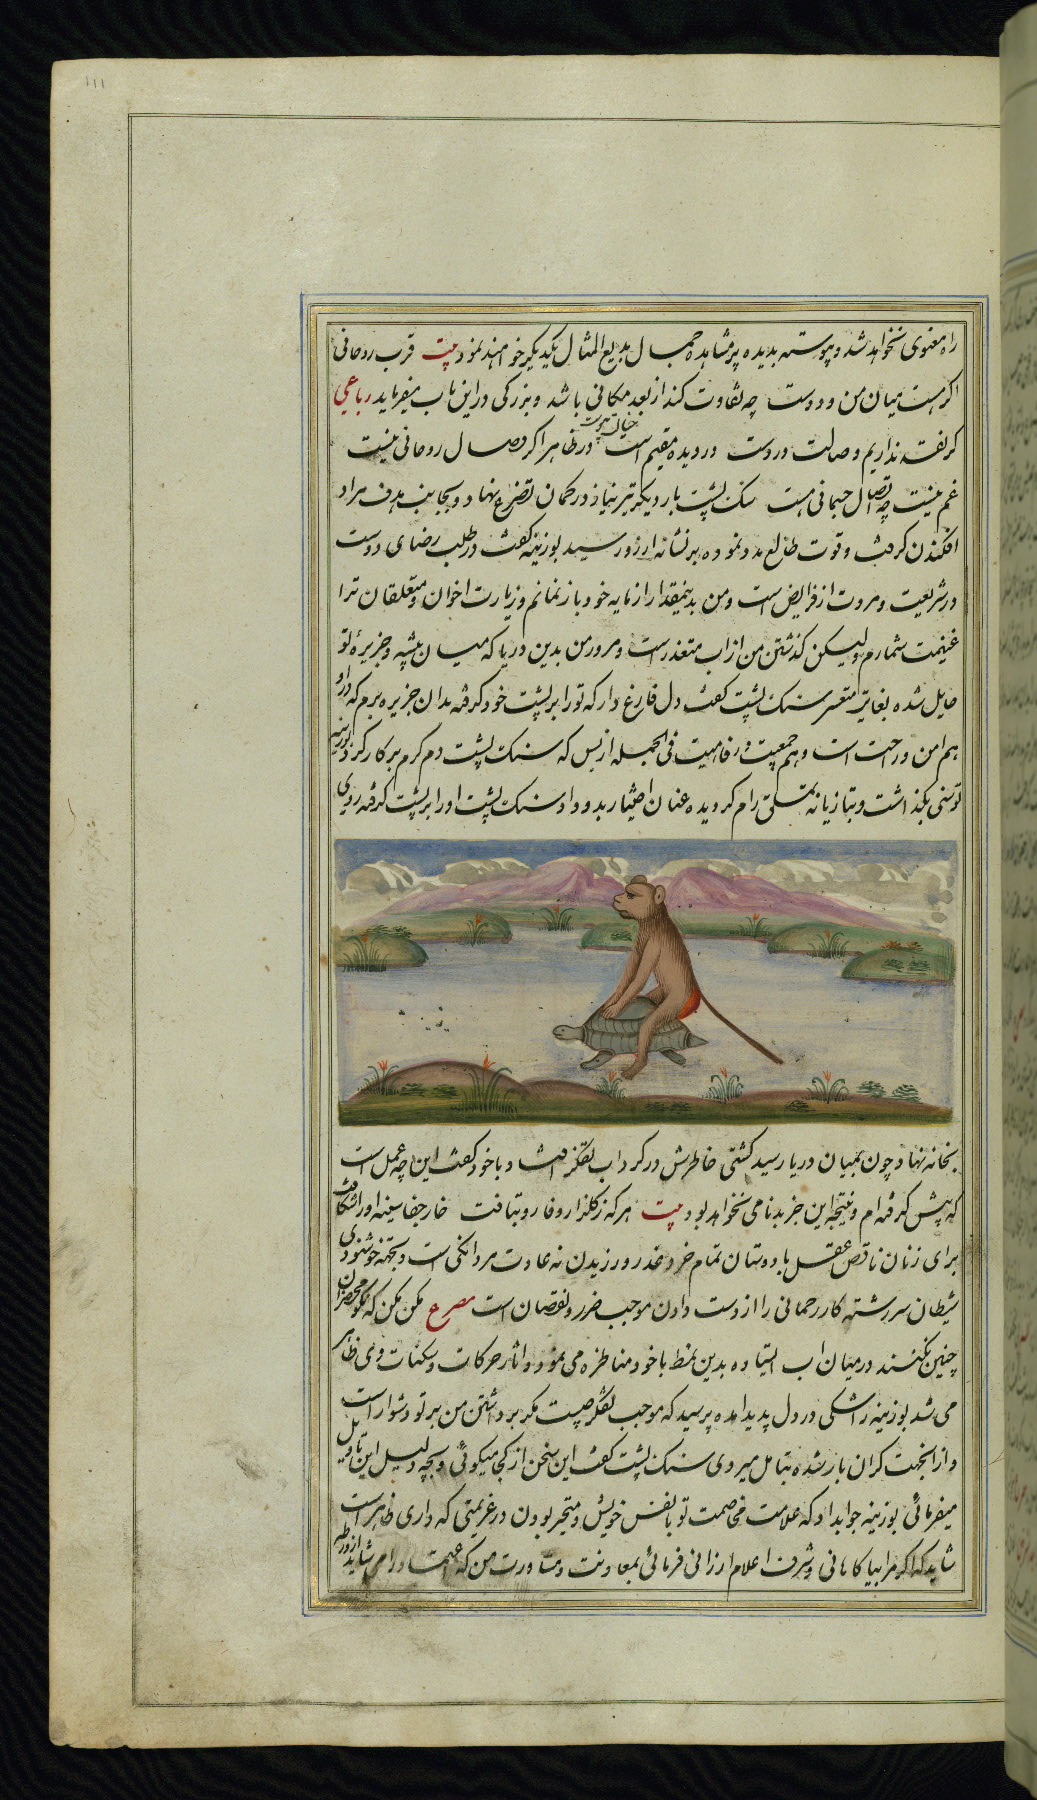 ۱۱۱
راه معنوی نخواهد شد و پیوسته بدیده پر مشاهده جمال بدیع المثال یکدیگر خواهند نمود بیت قرب روحانی
اگر هست میان من و دوست چه تفاوت کند از بعد مکانی باشد و بزرگی در این باب میفرماید رباعی
کر نداریم وصالت در دست در دیده مقیم است خیالت پیوست در ظاهر اگر وصال روحانی نیست
غم نیست چه اتصال جسمانی هست سنک پشت بار دیگر تیر نیاز در کمان تضرع نهاد و بجانب هدف مراد
افکندن گرفت و قوت طالع مدد نموده بر نشانه ارزو رسید بوزینه گفت در طلب رضای دوست
در شریعت و مروت از فرایض است و من بدینمقدار از مایه خود باز نمانم و زیارت اخوان و متعلقان ترا
غنیمت شمارم ولیکن گذشتن من از اب متعذر است و مرور من بدین دریا که میان بیشه و جزیره تو
حایل شده بغایت متعسر سنک پشت گفت دل فارغ دار که تو را بر پشت خود گرفته بدان جزیره برم که در او
هم امن و راحت است و هم جمعیت و رفاهیت فی الجمله از بس که سنک پشت دم گرم بر کار کرد بوزینه
توسنی بگذاشت و بتازیانه تملق رام گردیده عنان اختیار بدو داد سنک پشت او را بر پشت گرفته روی
بخانه نهاد چون بمیان دریا رسید کشتی خاطرش در گرداب تفکر افتاد و با خود گفت این چه عمل است
که پیش گرفته ام و نتیجه این جز بدنامی نخواهد بود بیت هر که ز گلزار وفا رو بتافت خار جفا سینه او را شکافت
برای زنان ناقص عقل با دوستان تمام خرد غدر ورزیدن نه عادت مردانگی است و بجهة خوشنودی
شیطان سررشته کار رحمانی را از دست دادن موجب ضرر و نقصان است مصرع مکن مکن که نکو محضران
چنین نکنند در میان اب ایستاده بدین نمط با خود مناظره می نمود و اثار حرکات و سکنات وی ظاهر
می شد بوزینه را شکی در دل پدید امده پرسید که موجب تفکر چیست مگر برداشتن من بر تو دشوار است
و از انجهت گران بار شده بتامل میروی سنک پشت گفت این سخن از کجا میگوئی و بچه دلیل این تاویل
میفرمائی بوزینه جوابداد که علامت مخاصمت تو با نفس خویش و متحیر بودن در عزیمتی که داری ظاهر است
شاید که اگر مرا بیاگاهانی و شرف اعلام ارزانی فرمائی بمعاونت و مشاورت من که